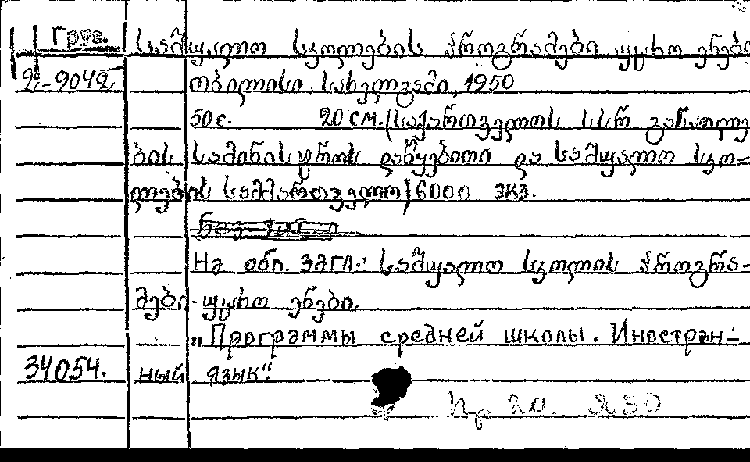 Груз. საშუალო სკოლების პროგრამები უცხო ენები
2-9042 თბილისი, სახელგამი, 1950
50 с. 20 см. (საქართველოს სსრ განათლე
ბის სამინისტროს დაწყებითი და საშუალო სკო-
ლების სამმართველო) 6000 экз.
На обл. загл.: საშუალო სკოლის პროგრა-
მები უცხო ენები.
„Программы средней школы. Иностран-
34054. ный язык".